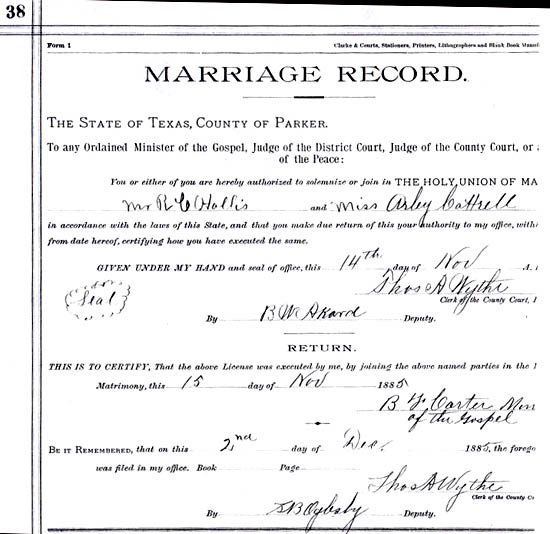 38
Form 1 Clarke & Courts, Stationers, Printers, Lithographers and Blank Book
MARRIAGE RECORD.
THE STATE OF TEXAS, COUNTY OF PARKER.
To any Ordained Minister of the Gospel, Judge of the District Court, Judge of the County Court, or
of the Peace:
You or either of you are hereby authorized to solemnize or join in THE HOLY UNION OF MA
Mr R C Hollis and Miss Arley Cottrell
in accordance with the laws of this State, and that you make due return of this your authority to my office, with
from date hereof, certifying how you have executed the same.
GIVEN UNDER MY HAND and seal of office, this 14th day of Nov A.
Seal Thos A Wythe
Clerk of the County Court,
By B W Akard Deputy.
RETURN.
THIS IS TO CERTIFY, That the above License was executed by me, by joining the above named parties in the
Matrimony, this 15 day of Nov 1885
B F Carter Min
of the Gospel
BE IT REMEMBERED, that on this 2nd day of Dec. 1885, the forego
was filed in my office. Book Page
Thos A Wythe
Clerk of the County Co
By Deputy.